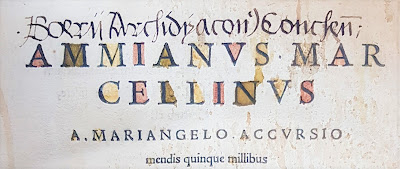 Archidyaconj Conchen̄;
AMMIANVS MAR
CELLINVS
A. MARIANGELO ACCVRSIO
mendis quinque millibus